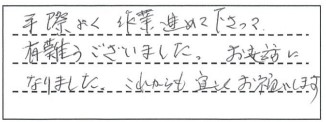 手際よく作業進めて下さって
有難うございました。 お世話に
なりました。これからも宜しくお願いします